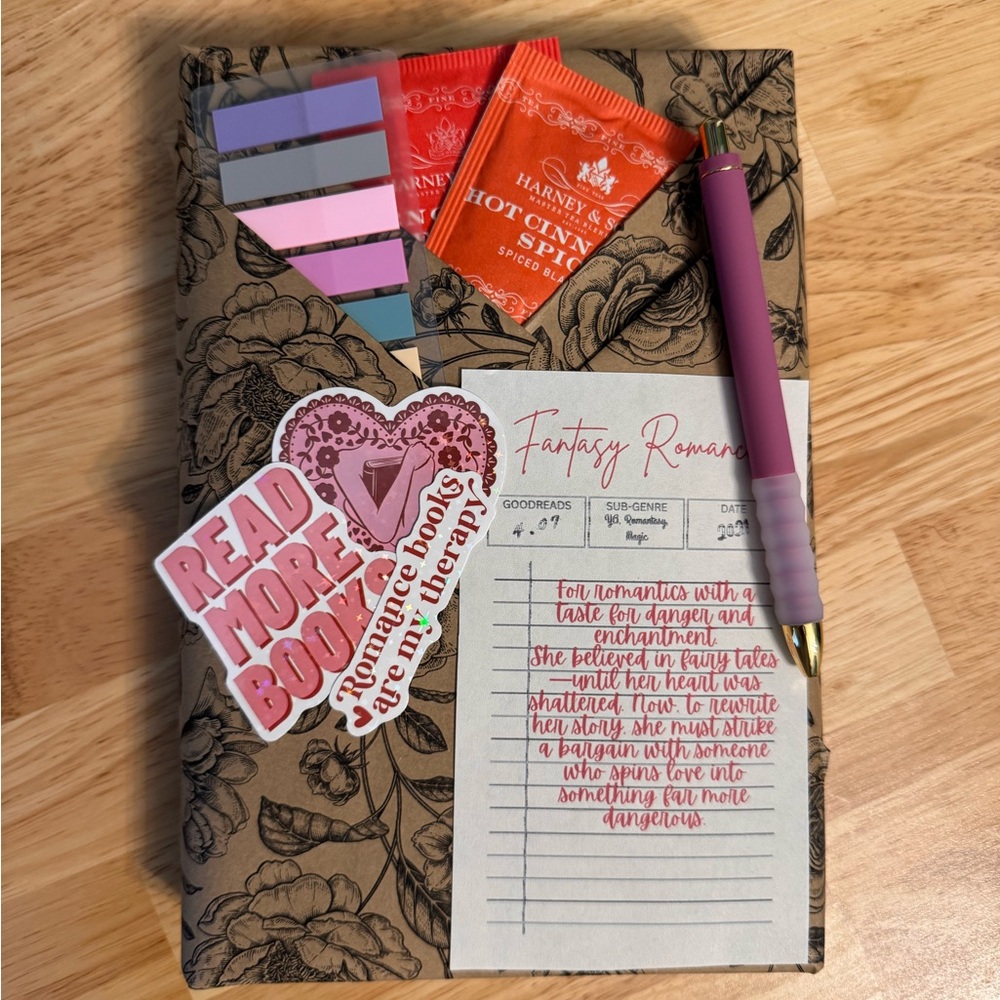 PINE
HARNEY & S
MASTER TEA BLEN
HOT CINN
SPIC
SPICED BLA
READ
MORE
BOOKS
Romance books
are my therapy
Fantasy Romanc
GOODREADS
4.07
SUB-GENRE
YA, Romantasy,
Magic
DATE
For romantics with a
taste for danger and
enchantment.
She believed in fairy tales
—until her heart was
shattered. Now, to rewrite
her story, she must strike
a bargain with someone
who spins love into
something far more
dangerous.